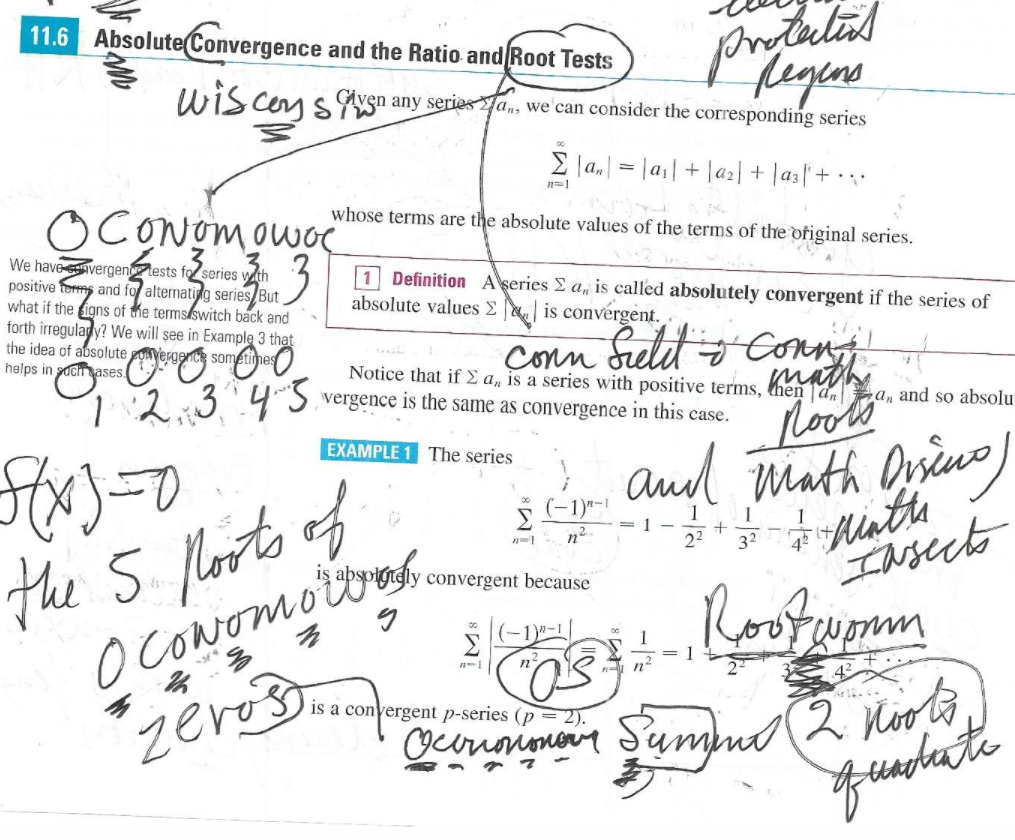 protected
11.6 Absolute Convergence and the Ratio and Root Tests
Given any series Σ aₙ, we can consider the corresponding series
∞ Σ n=1 |aₙ| = |a₁| + |a₂| + |a₃| + ···
whose terms are the absolute values of the terms of the original series.
OCONOMOWOC
3 3 3 3
We have convergence tests for series with
positive terms and for alternating series. But
what if the signs of the terms switch back and
forth irregularly? We will see in Example 3 that
the idea of absolute convergence sometimes
helps in such cases.
O O O O O
1 2 3 4 5
1 Definition A series Σ aₙ is called absolutely convergent if the series of
absolute values Σ |aₙ| is convergent.
Corn field → Corn
math
Roots
Notice that if Σ aₙ is a series with positive terms, then |aₙ| = aₙ and so absolu
vergence is the same as convergence in this case.
EXAMPLE 1 The series
and Math
math
Insects
∞ Σ n=1 (−1)ⁿ⁻¹ / n² = 1 − 1/2² + 1/3² − 1/4² + ···
f(x)=0
the 5 Roots of
Oconomowoc
zeros
is absolutely convergent because
Rootworm
∞ Σ n=1 |(−1)ⁿ⁻¹ / n²| = ∞ Σ n=1 1/n² = 1 + 1/2² + 1/3² + 1/4² + ···
OS
is a convergent p-series (p = 2).
2 roots